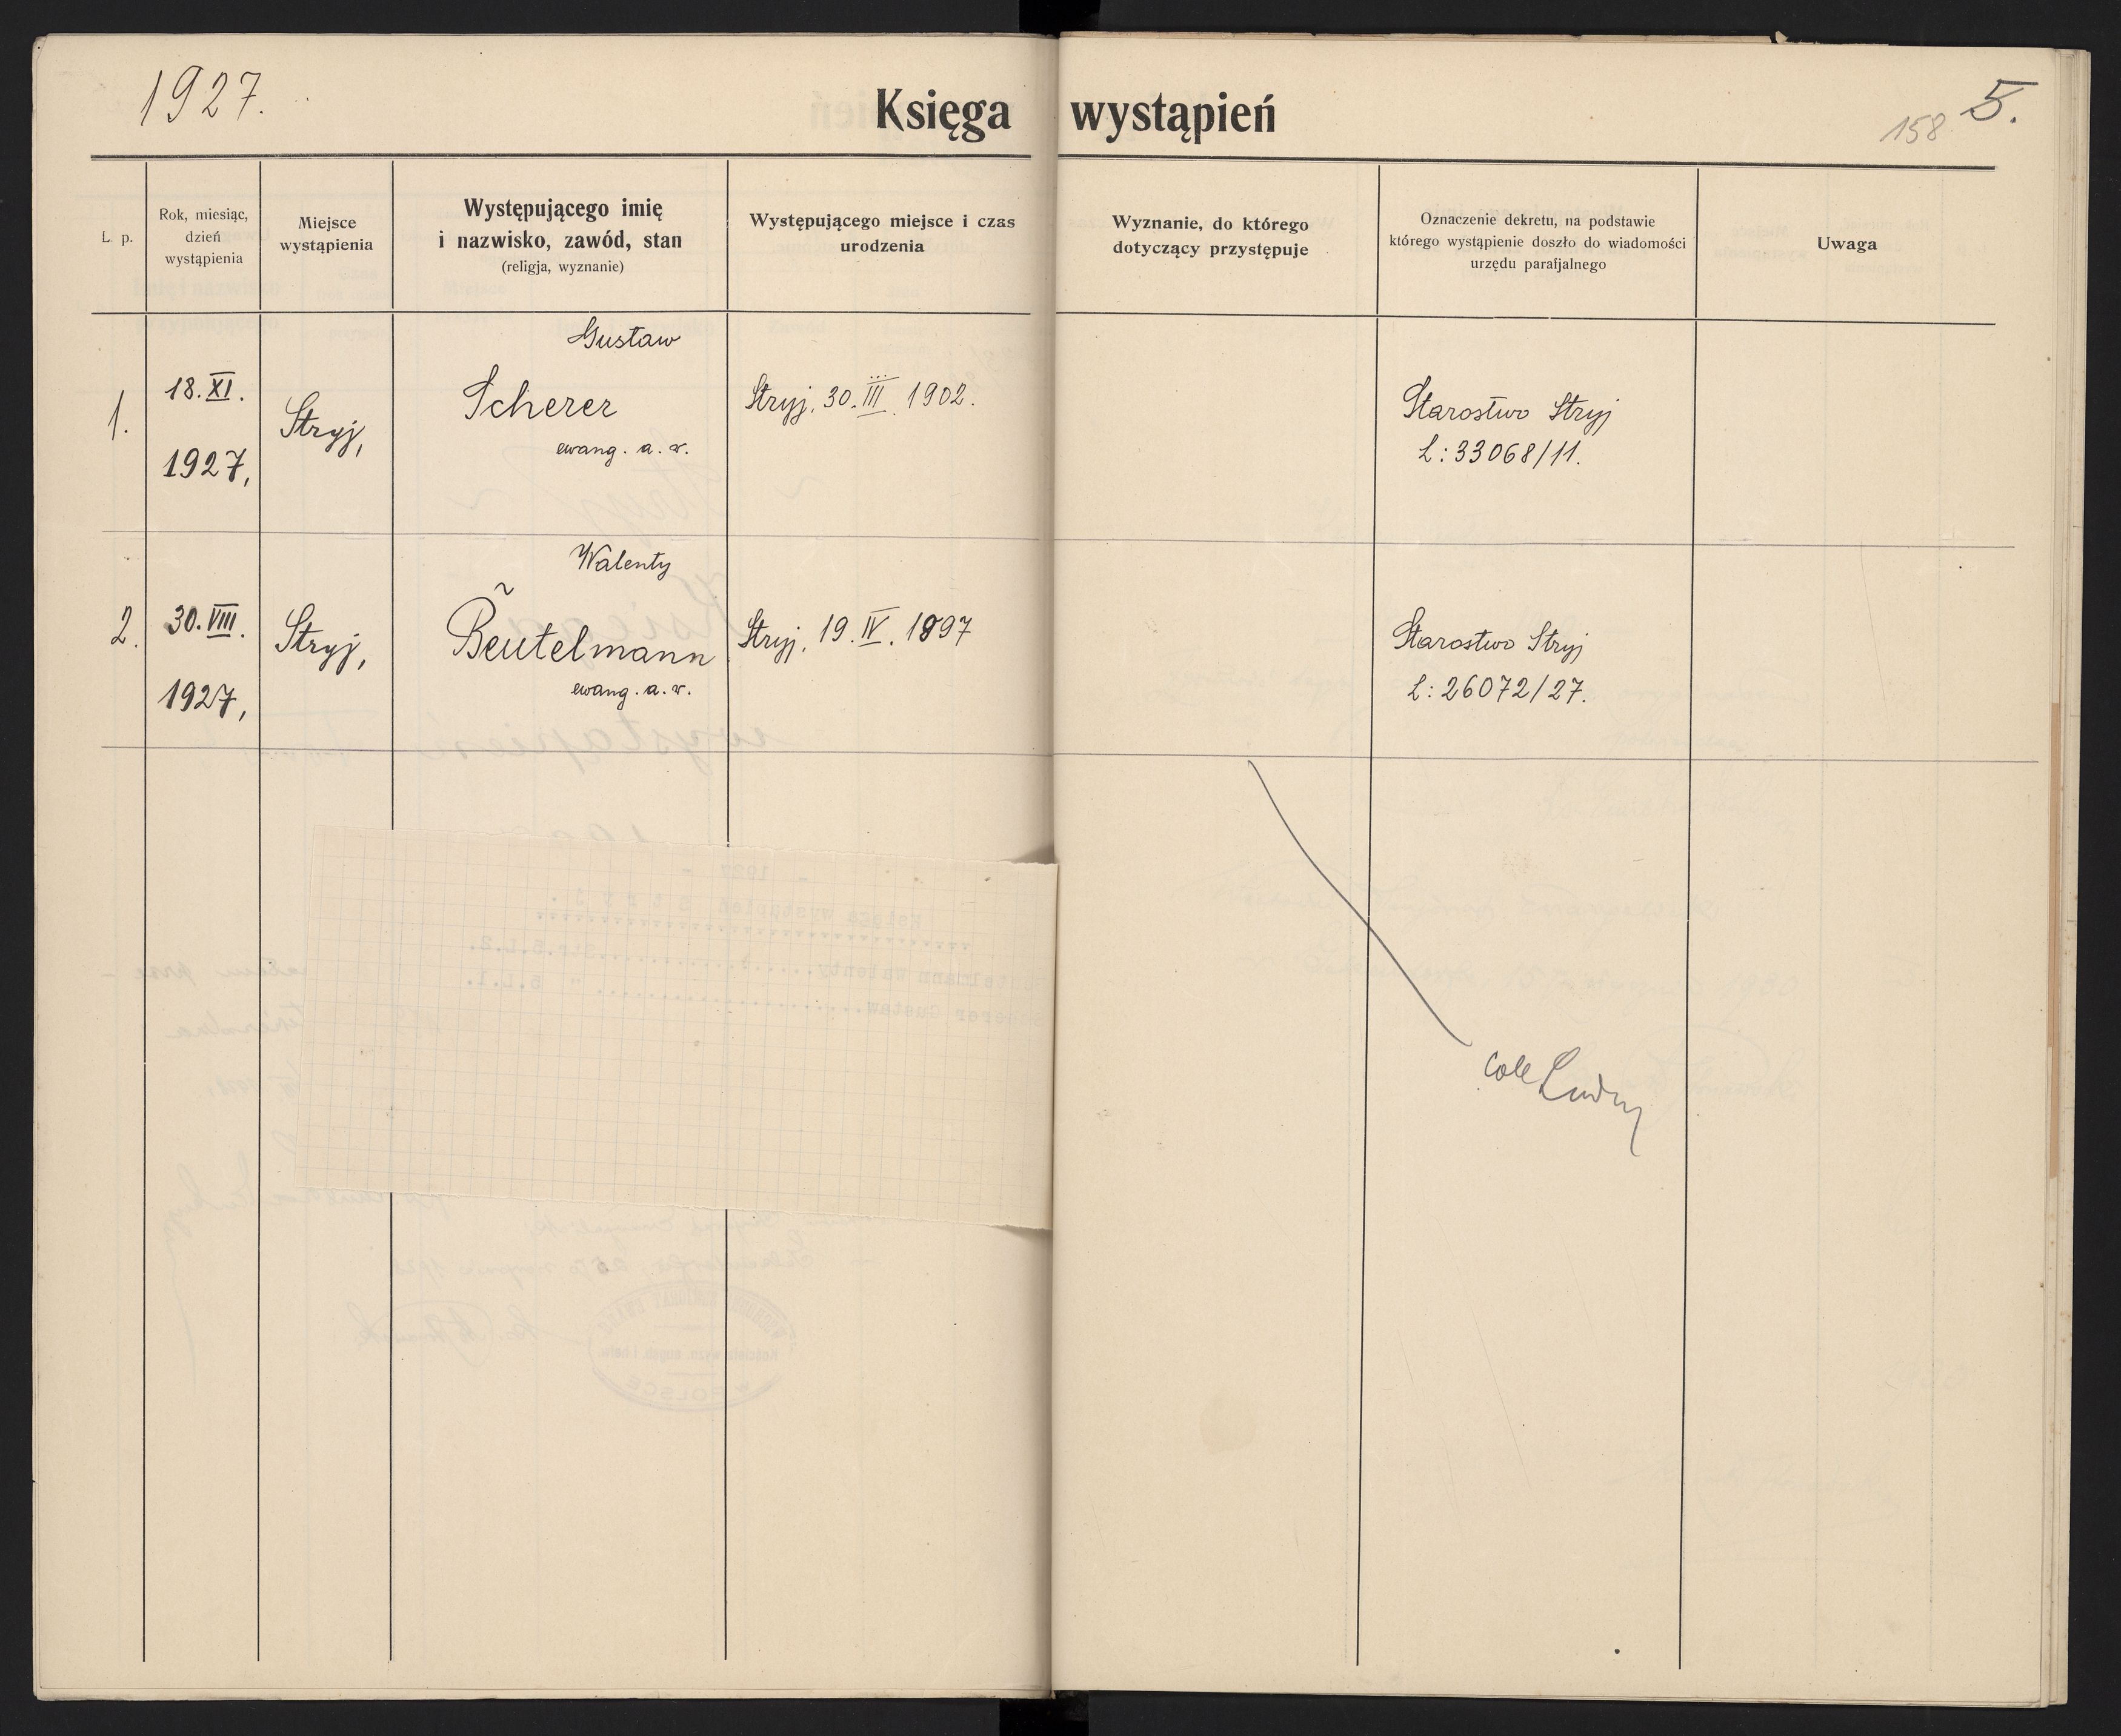 1927.
Księga wystąpień
158 5.
L. p.
Rok, miesiąc,
dzień
wystąpienia
Miejsce
wystąpienia
Występującego imię
i nazwisko, zawód, stan
(religja, wyznanie)
Występującego miejsce i czas
urodzenia
Wyznanie, do którego
dotyczący przystępuje
Oznaczenie dekretu, na podstawie
którego wystąpienie doszło do wiadomości
urzędu parafjalnego
Uwaga
1.
18. XI.
1927,
Stryj,
Gustaw
Scherer
ewang. a. w.
Stryj, 30. III. 1902.
Starostwo Stryj
L: 33068/11.
2.
30. VIII.
1927,
Stryj,
Walenty
Beutelmann
ewang. a. w.
Stryj, 19. IV. 1897
Starostwo Stryj
L: 26072/27.
- 1927 -
Księga wystąpień S t r y j .
Walenty
str.5.L.2.
Scherer Gustaw
" 5.L.1.